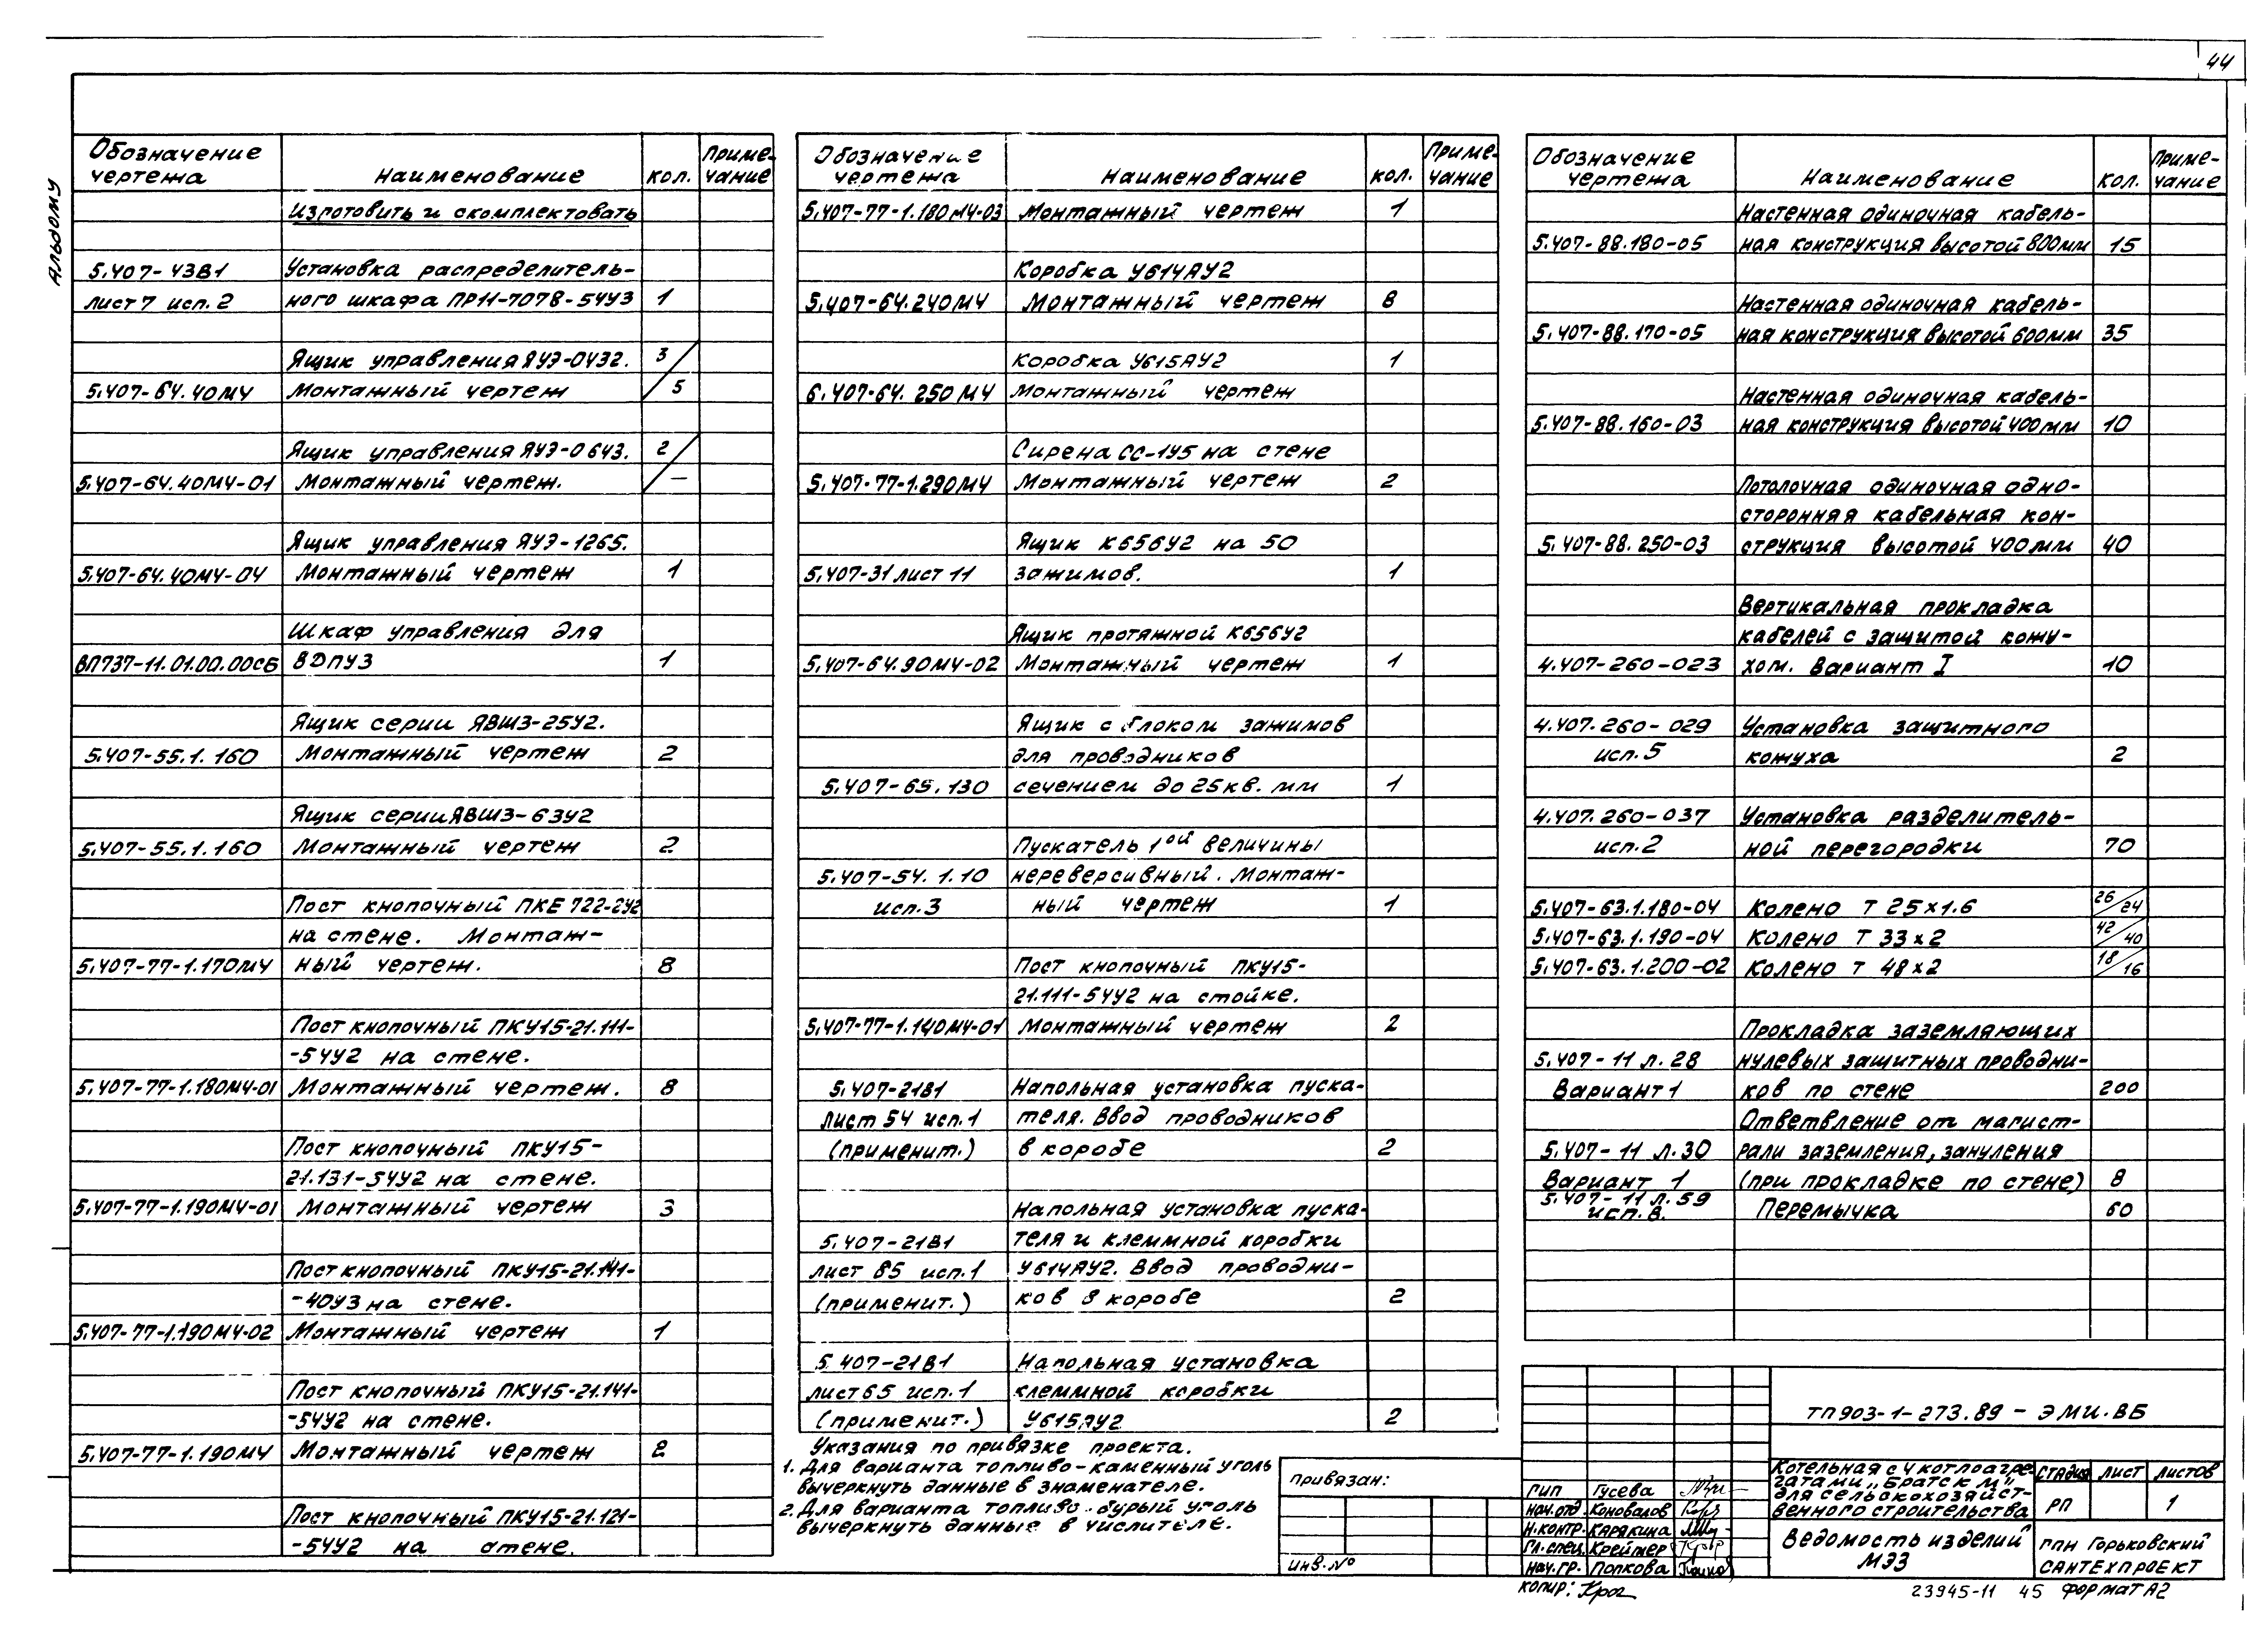 44
Альбом У
Обозначение чертежа Наименование Кол. Примечание
Изготовить и скомплектовать
5.407-43В1 Установка распределитель-
лист 7 исп. 2 ного шкафа ПР11-7078-54У3 1
Ящик управления ЯУЭ-0432. 3/
5.407-64.40МЧ Монтажный чертеж /5
Ящик управления ЯУЭ-0643. 2/
5.407-64.40МЧ-01 Монтажный чертеж. /—
Ящик управления ЯУЭ-1265.
5.407-64.40МЧ-04 Монтажный чертеж 1
Шкаф управления для
ВП737-11.01.00.00СБ ВДПУЗ 1
Ящик серии ЯВШ3-25У2.
5.407-55.1.160 Монтажный чертеж 2
Ящик серии ЯВШ3-63У2
5.407-55.1.160 Монтажный чертеж 2
Пост кнопочный ПКЕ 722-2У2
на стене. Монтаж-
5.407-77-1.170МЧ ный чертеж. 8
Пост кнопочный ПКУ15-21.111-
-54У2 на стене.
5.407-77-1.180МЧ-01 Монтажный чертеж. 8
Пост кнопочный ПКУ15-
21.131-54У2 на стене.
5.407-77-1.190МЧ-01 Монтажный чертеж 3
Пост кнопочный ПКУ15-21.141-
-40У3 на стене.
5.407-77-1.190МЧ-02 Монтажный чертеж 1
Пост кнопочный ПКУ15-21.141-
-54У2 на стене.
5.407-77-1.190МЧ Монтажный чертеж 2
Пост кнопочный ПКУ15-21.121-
-54У2 на стене.
Обозначение чертежа Наименование Кол. Примечание
5.407-77-1.180МЧ-03 Монтажный чертеж 1
Коробка У614АУ2
5.407-64.240МЧ Монтажный чертеж 8
Коробка У615АУ2 1
6.407-64.250МЧ Монтажный чертеж
Сирена СС-1У5 на стене
5.407-77-1.290МЧ Монтажный чертеж 2
Ящик К656У2 на 50
5.407-31 лист 11 зажимов. 1
Ящик протяжной К656У2
5.407-64.90МЧ-02 Монтажный чертеж 1
Ящик с блоком зажимов
для проводников
5.407-65.130 сечением до 25кв.мм 1
Пускатель 1ой величины
5.407-54.1.10 нереверсивный. Монтаж-
исп.3 ный чертеж 1
Пост кнопочный ПКУ15-
21.111-54У2 на стойке.
5.407-77-1.140МЧ-01 Монтажный чертеж 2
5.407-21В1 Напольная установка пуска-
лист 54 исп.1 теля. Ввод проводников
(применит.) в коробе 2
Напольная установка пуска-
5.407-21В1 теля и клеммной коробки
лист 85 исп.1 У614АУ2. Ввод проводни-
(применит.) ков в коробе 2
5.407-21В1 Напольная установка
лист 65 исп.1 клеммной коробки
(применит.) У615АУ2 2
Указания по привязке проекта.
1. Для варианта топливо-каменный уголь
вычеркнуть данные в знаменателе.
2. Для варианта топливо-бурый уголь
вычеркнуть данные в числителе.
Обозначение чертежа Наименование Кол. Примечание
Настенная одиночная кабель-
5.407-88.180-05 ная конструкция высотой 800мм 15
Настенная одиночная кабель-
5.407-88.170-05 ная конструкция высотой 600мм 35
Настенная одиночная кабель-
5.407-88.160-03 ная конструкция высотой 400мм 10
Потолочная одиночная одно-
сторонняя кабельная кон-
5.407-88.250-03 струкция высотой 400мм 40
Вертикальная прокладка
кабелей с защитой кожу-
4.407-260-023 хом. Вариант I 10
4.407.260-029 Установка защитного
исп.5 кожуха 2
4.407.260-037 Установка разделитель-
исп.2 ной перегородки 70
5.407-63.1.180-04 Колено Т 25х1.6 26/24
5.407-63.1.190-04 Колено Т 33х2 42/40
5.407-63.1.200-02 Колено Т 48х2 18/16
Прокладка заземляющих
5.407-11 л.28 нулевых защитных проводни-
Вариант 1 ков по стене 200
Ответвление от магист-
5.407-11 л.30 рали заземления, зануления
Вариант 1 (при прокладке по стене) 8
5.407-11 л.59
исп.8. Перемычка 60
Привязан:
Инв.№
ГИП Гусева
Нач.отд. Коновалов
Н.контр. Карякина
Гл.спец. Креймер
Нач.гр. Попкова
ТП903-1-273.89 - ЭМИ.ВБ
Котельная с 4 котлоагре-
гатами „Братск М"
для сельскохозяйст-
венного строительства
Стадия Лист Листов
РП 1
Ведомость изделий
МЭЗ
ГПИ Горьковский
САНТЕХПРОЕКТ
Копир:
23945-11 45 Формат А2